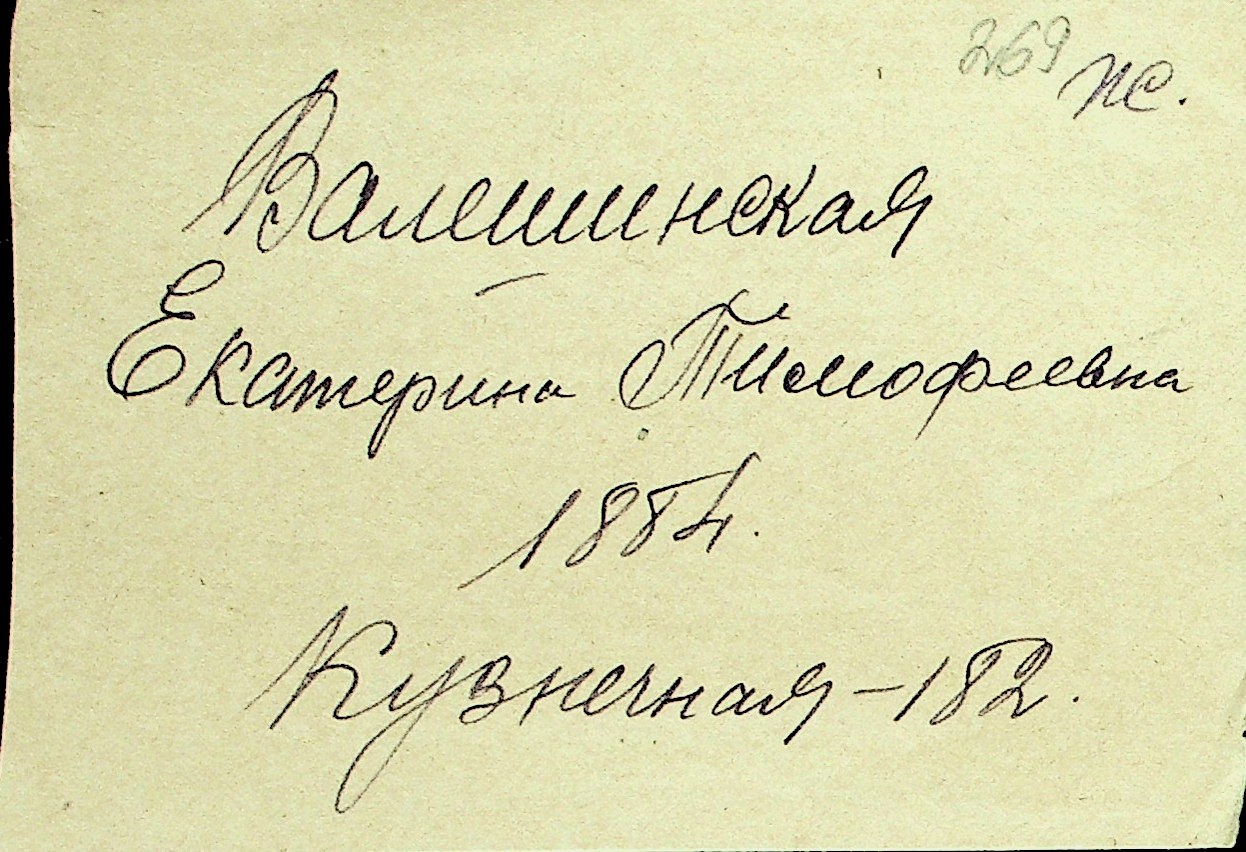 269 пс.
Валешинская
Екатерина Тимофеевна
1884.
Кузнечная – 182.